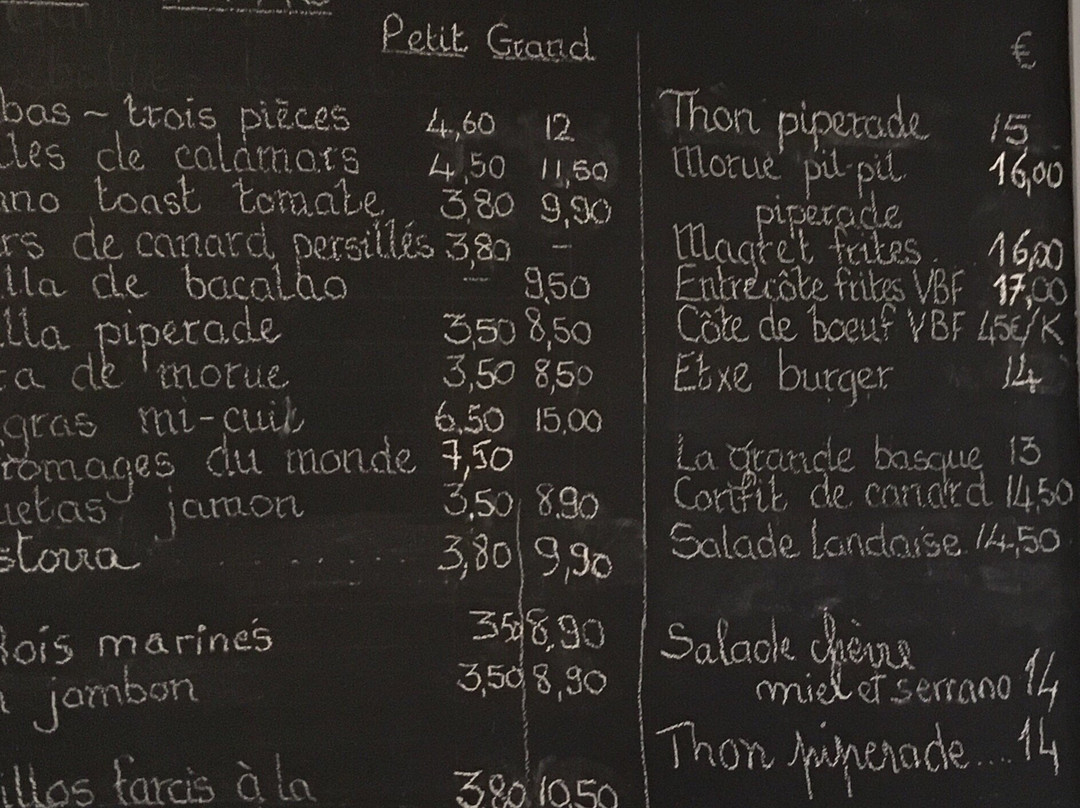 Petit Grand
bas ~ trois pièces 4,60 12
lles de calamars 4,50 11,50
no toast tomate 3,80 9,90
rs de canard persillés 3,80 -
lla de bacalao - 9,50
lla piperade 3,50 8,50
a de morue 3,50 8,50
gras mi-cuit 6,50 15,00
romages du monde 7,50
uetas jamon 3,50 8.90
storra .......... 3,80 9,90
hois marinés 350 8.90
jambon 3,50 8,90
illos farcis à la 3,80 10,50
€
Thon piperade 15
Morue pil-pil 16,00
piperade
Magret frites. 16,00
Entrecôte frites VBF 17,00
Côte de boeuf VBF 45€/K
Etxe burger 14
La grande basque 13
Confit de canard 14,50
Salade landaise. 14,50
Salade chèvre
miel et serrano 14
Thon piperade.... 14